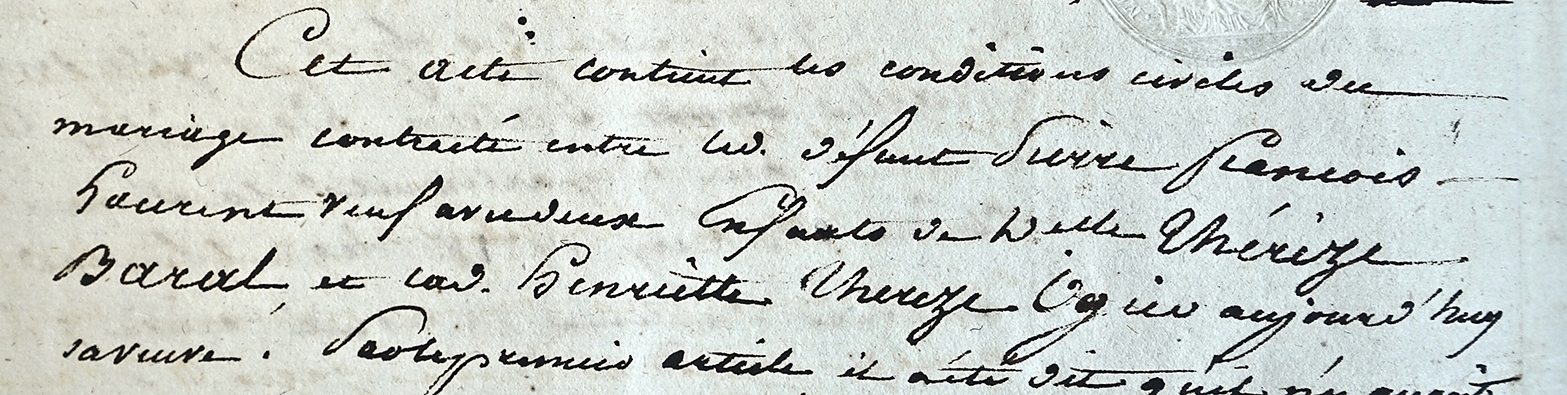 Cet acte contient les conditions civiles du
mariage contracté entre led. défunt Pierre françois
Laurent veuf avec deux Enfants de Delle Thérèze
Baral et lad. henriette Thereze Ogier aujourd'huy
sa veuve. Par le premier article il a été dit qu'il n'y auroit